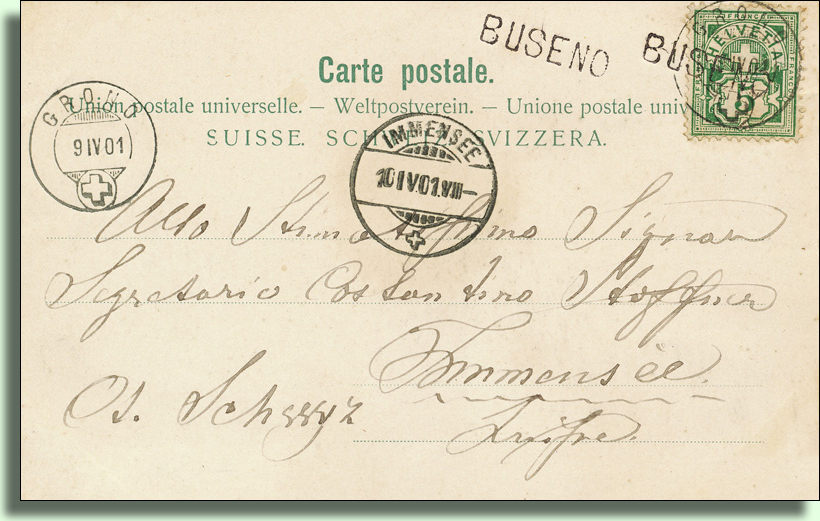 BUSENO BUSENO
FRANCO HELVETIA FRANCO
5
GRONO
Carte postale.
Union postale universelle. — Weltpostverein. — Unione postale univ
SUISSE. SCH SVIZZERA.
GRONO
9 IV 01
IMMENSEE
10 IV 01. VIII —
Allo Stimatissimo Signor
Segretario Costantino Stoffner
Immensee.
Ct. Schwyz